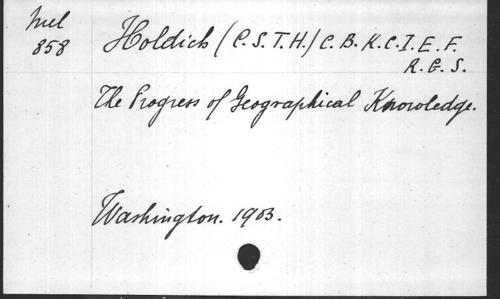 Mel
858
Holdich (C.S.T.H.) C.B.K.C.I.E.F.
R.G.S.
The Progress of Geographical Knowledge.
Washington. 1903.